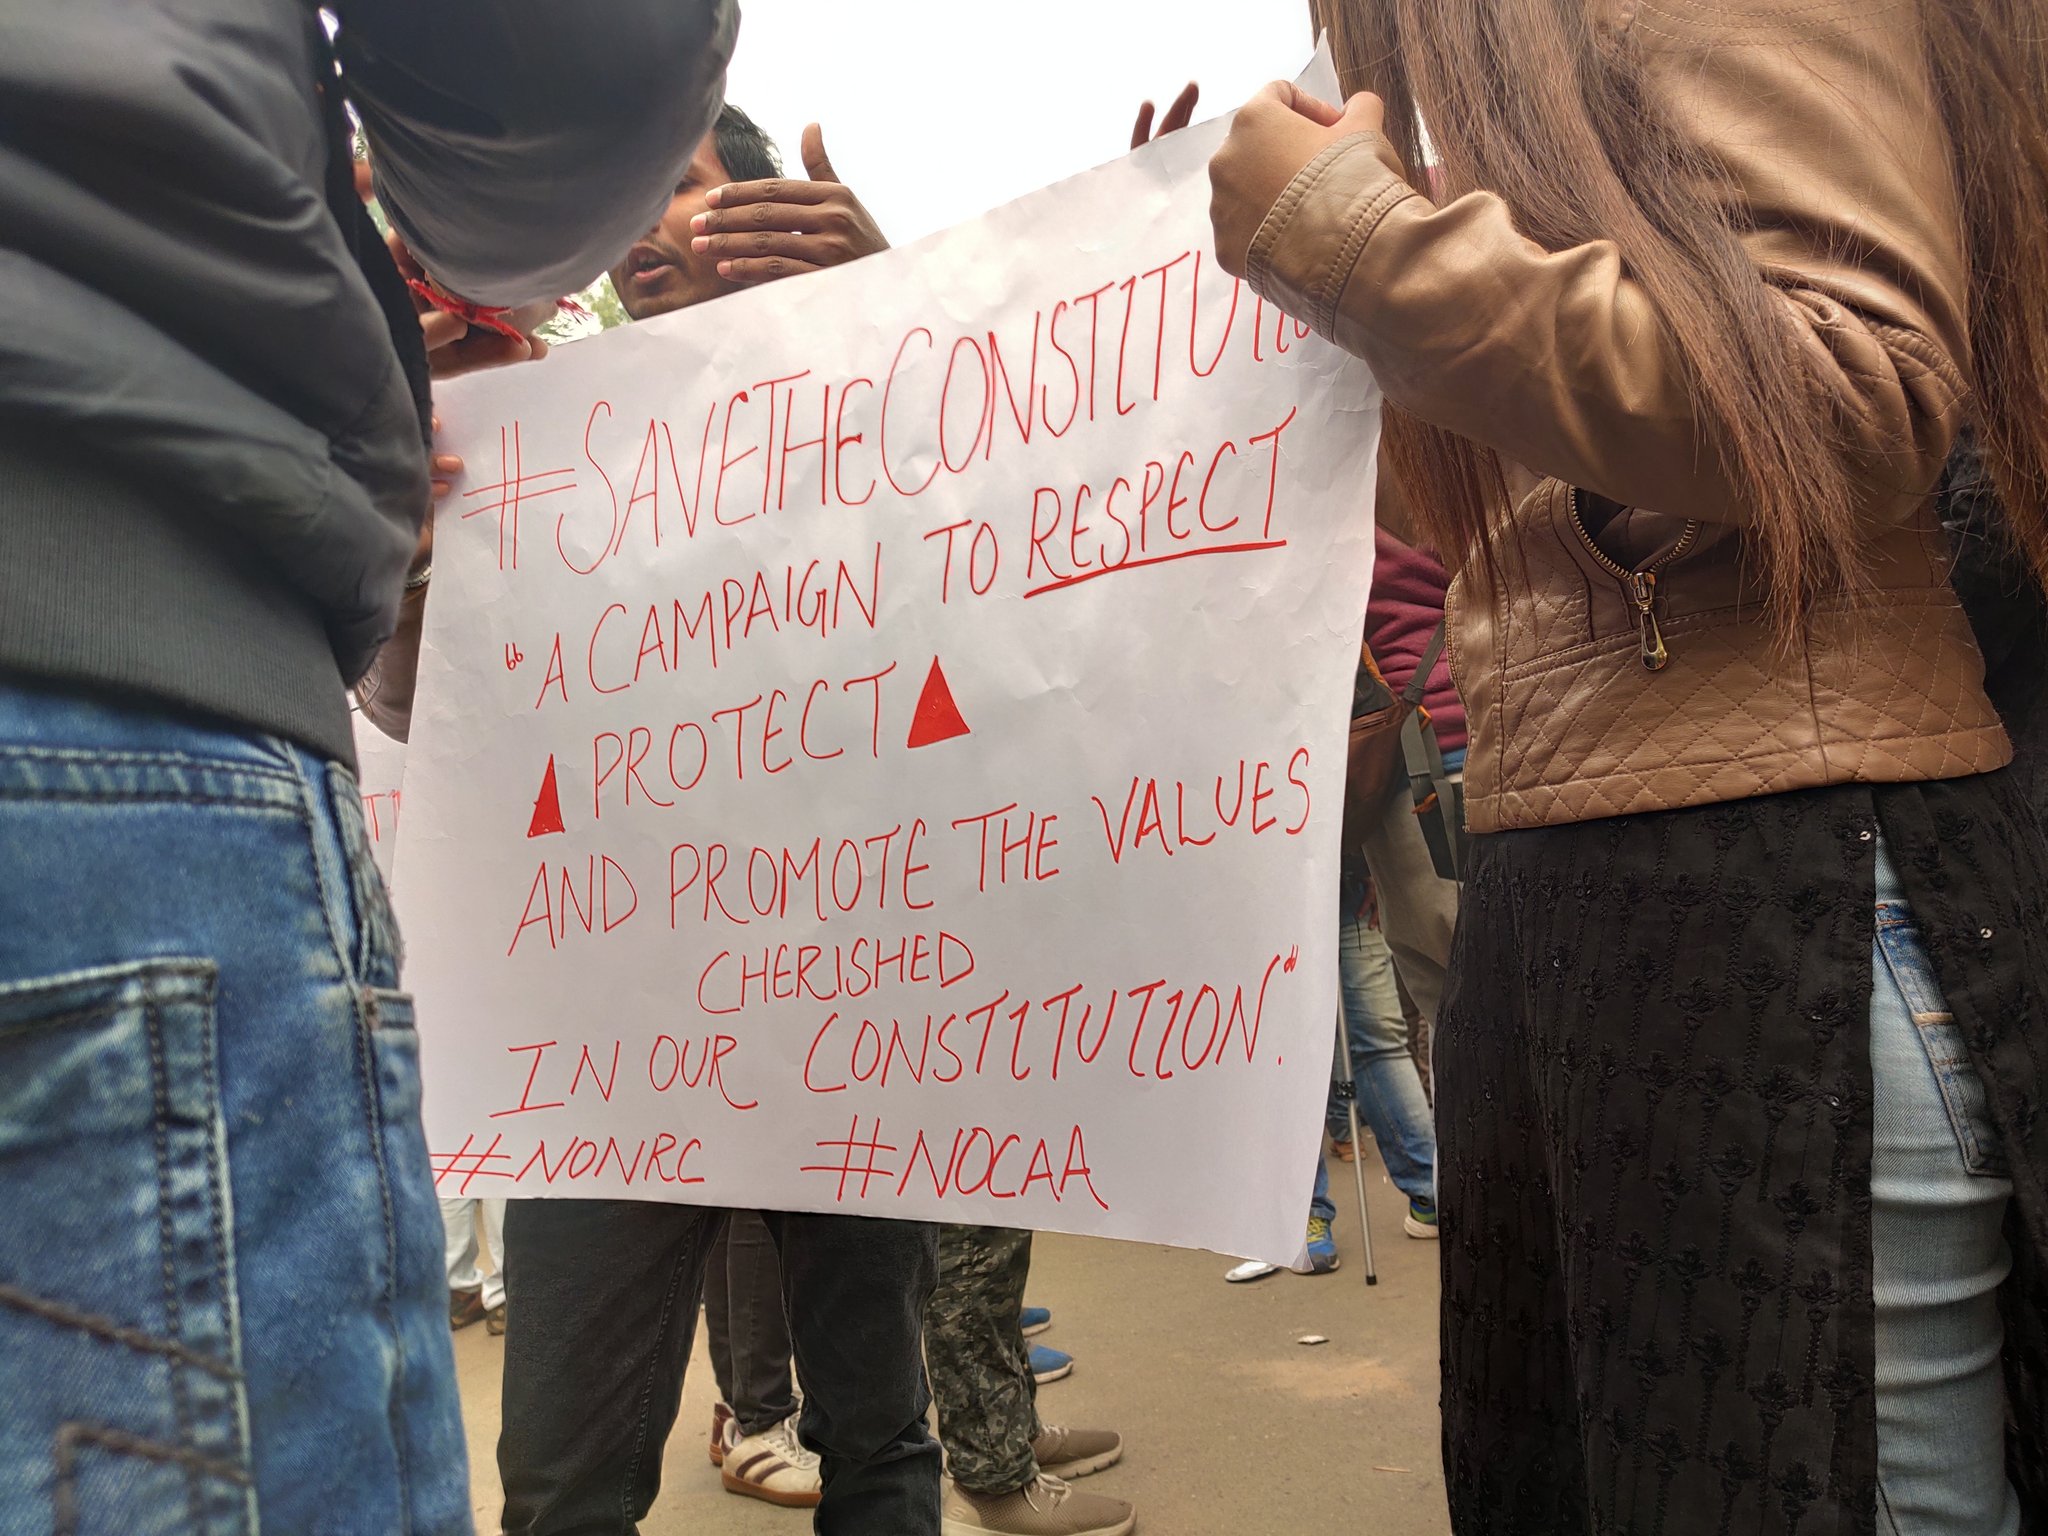 #SAVETHECONSTITUTIO
"A CAMPAIGN TO RESPECT
PROTECT
AND PROMOTE THE VALUES
CHERISHED
IN OUR CONSTITUTION."
#NONRC #NOCAA